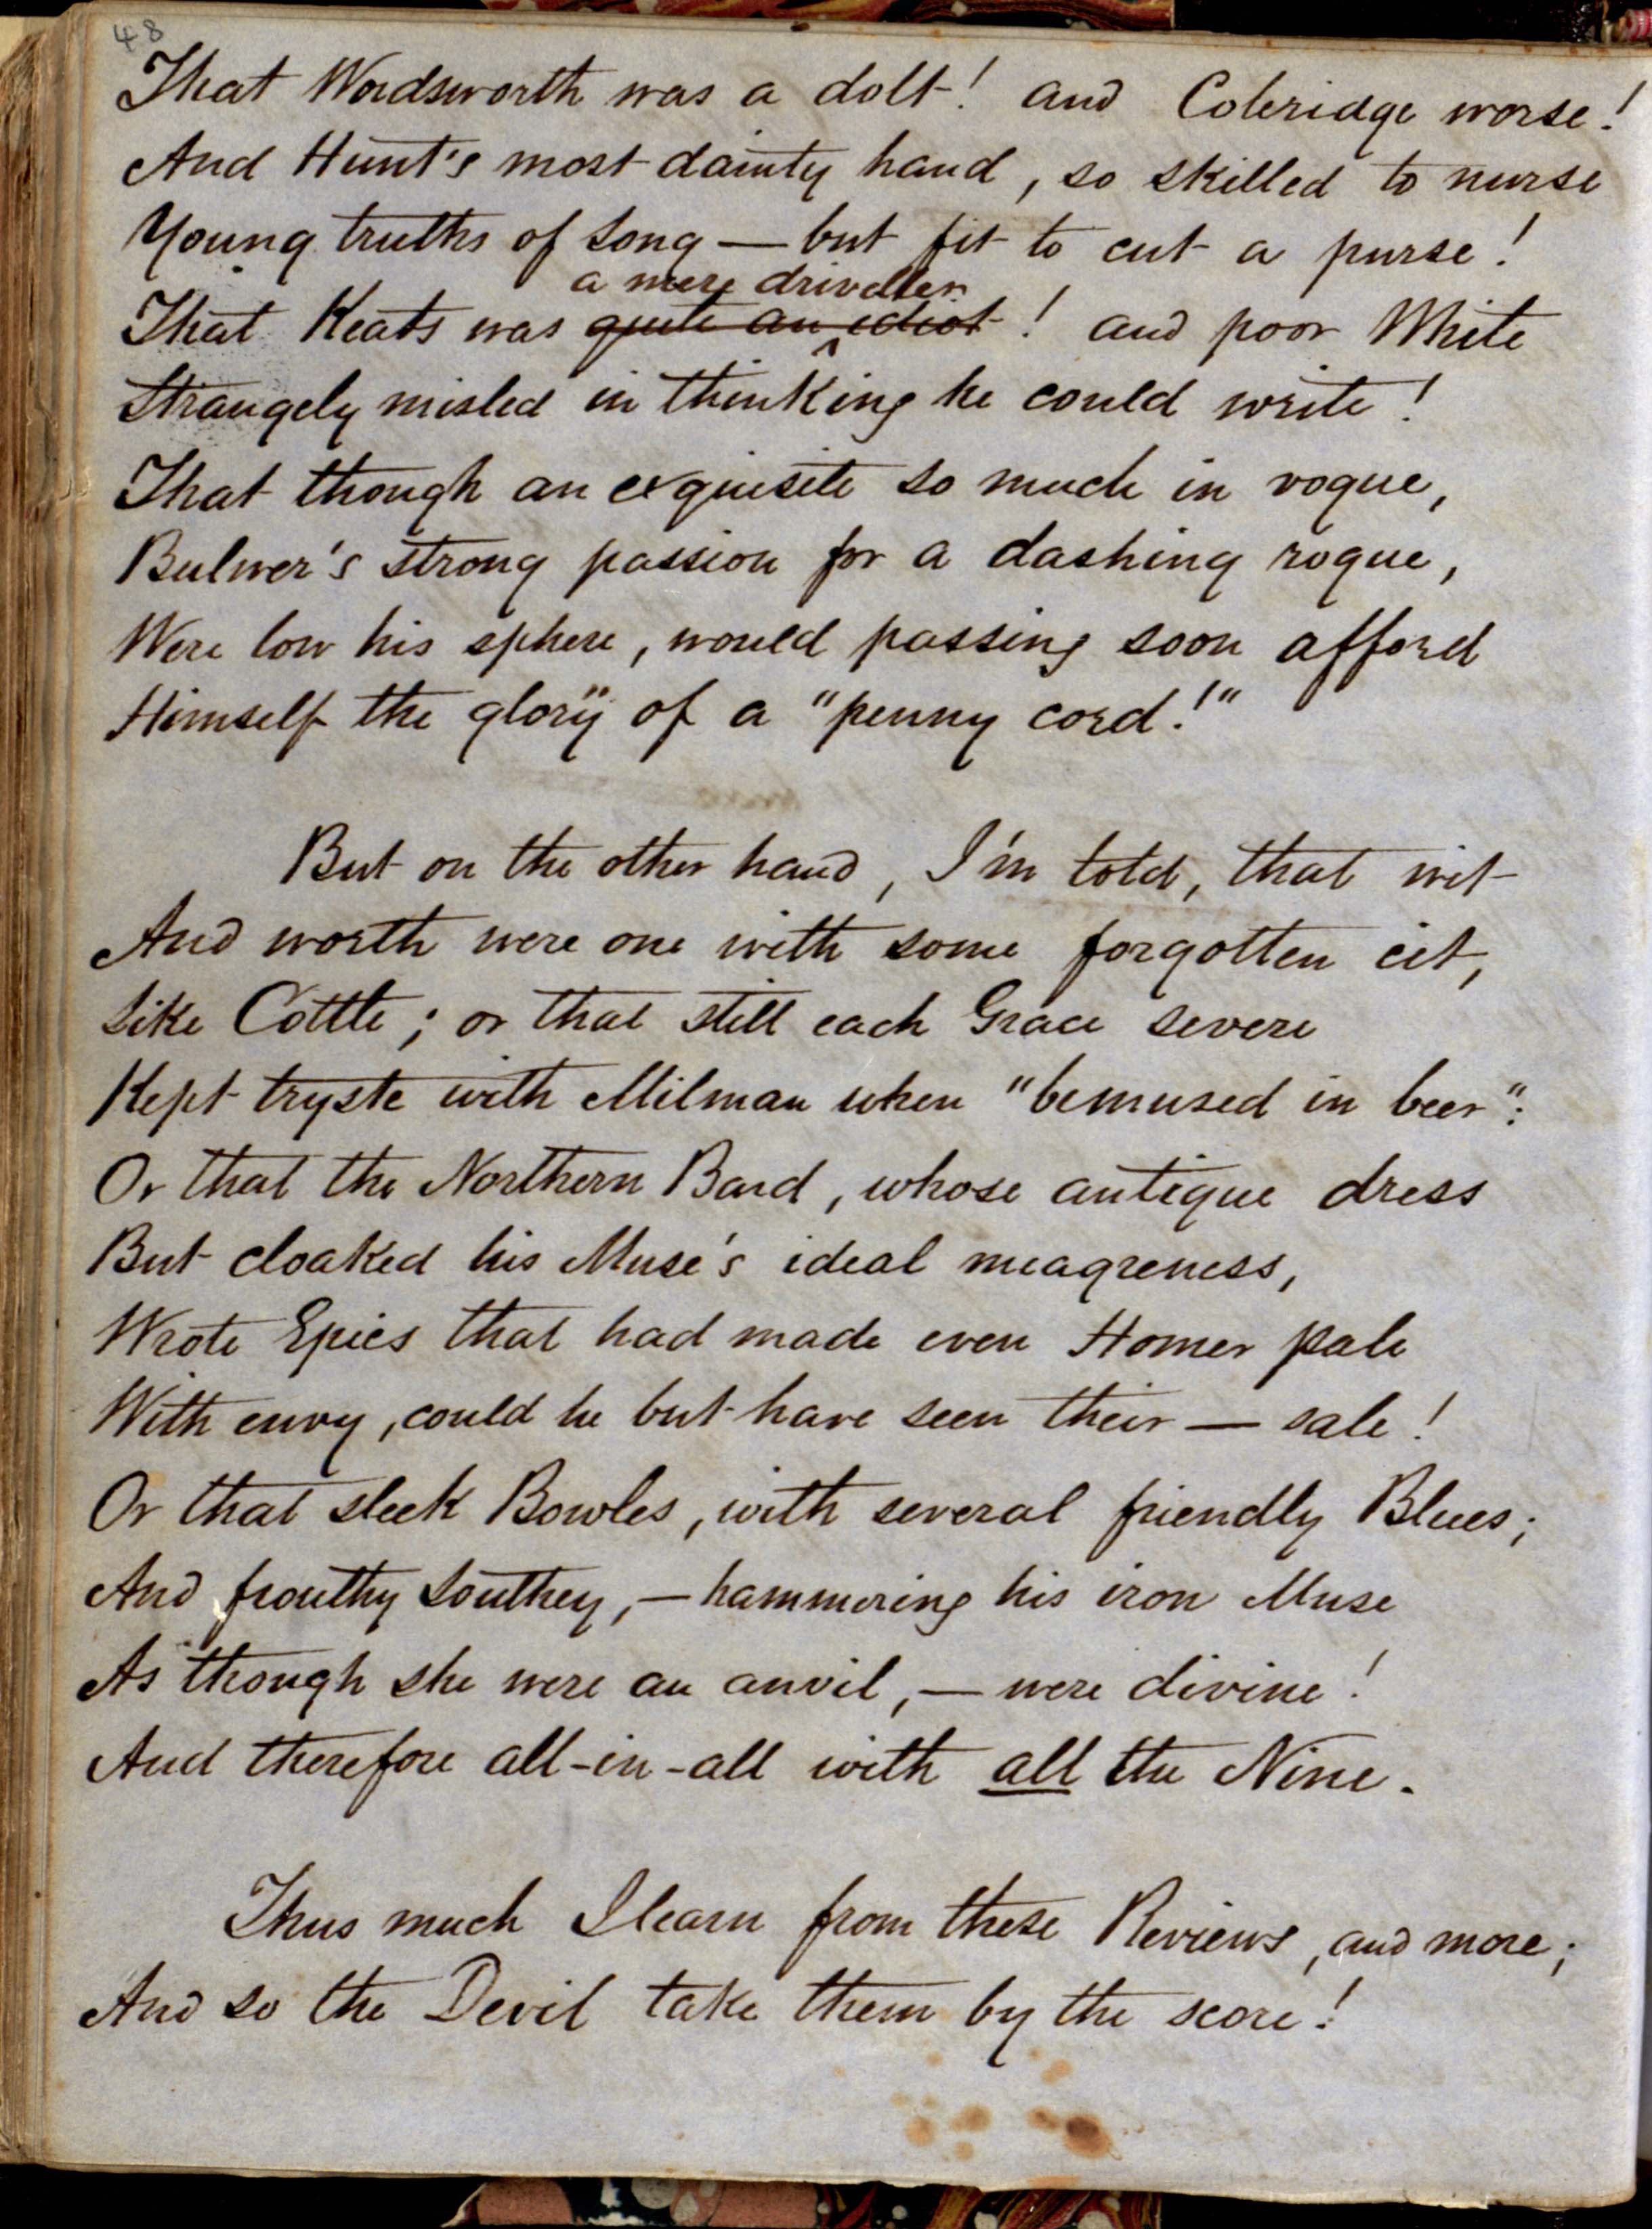 48
That Wordsworth was a dolt! and Coleridge worse!
And Hunt's most dainty hand, so skilled to nurse
Young truths of song — but fit to cut a purse!
a mere driveller
That Keats was quite an idiot! and poor White
Strangely misled in thinking he could write!
That though an exquisite so much in vogue,
Bulwer's strong passion for a dashing rogue,
Were low his sphere, would passing soon afford
Himself the glory of a "penny cord!"
But on the other hand, I'm told, that wit
And worth were one with some forgotten cit,
Like Cottle; or that still each Grace severe
Kept tryste with Milman when "bemused in beer":
Or that the Northern Bard, whose antique dress
But cloaked his Muse's ideal meagreness,
Wrote Epics that had made even Homer pale
With envy, could he but have seen their — sale!
Or that sleek Bowles, with several friendly Blues;
And frouthy Southey, — hammering his iron Muse
As though she were an anvil, — were divine!
And therefore all-in-all with all the Nine.
Thus much I learn from these Reviews, and more;
And so the Devil take them by the score!